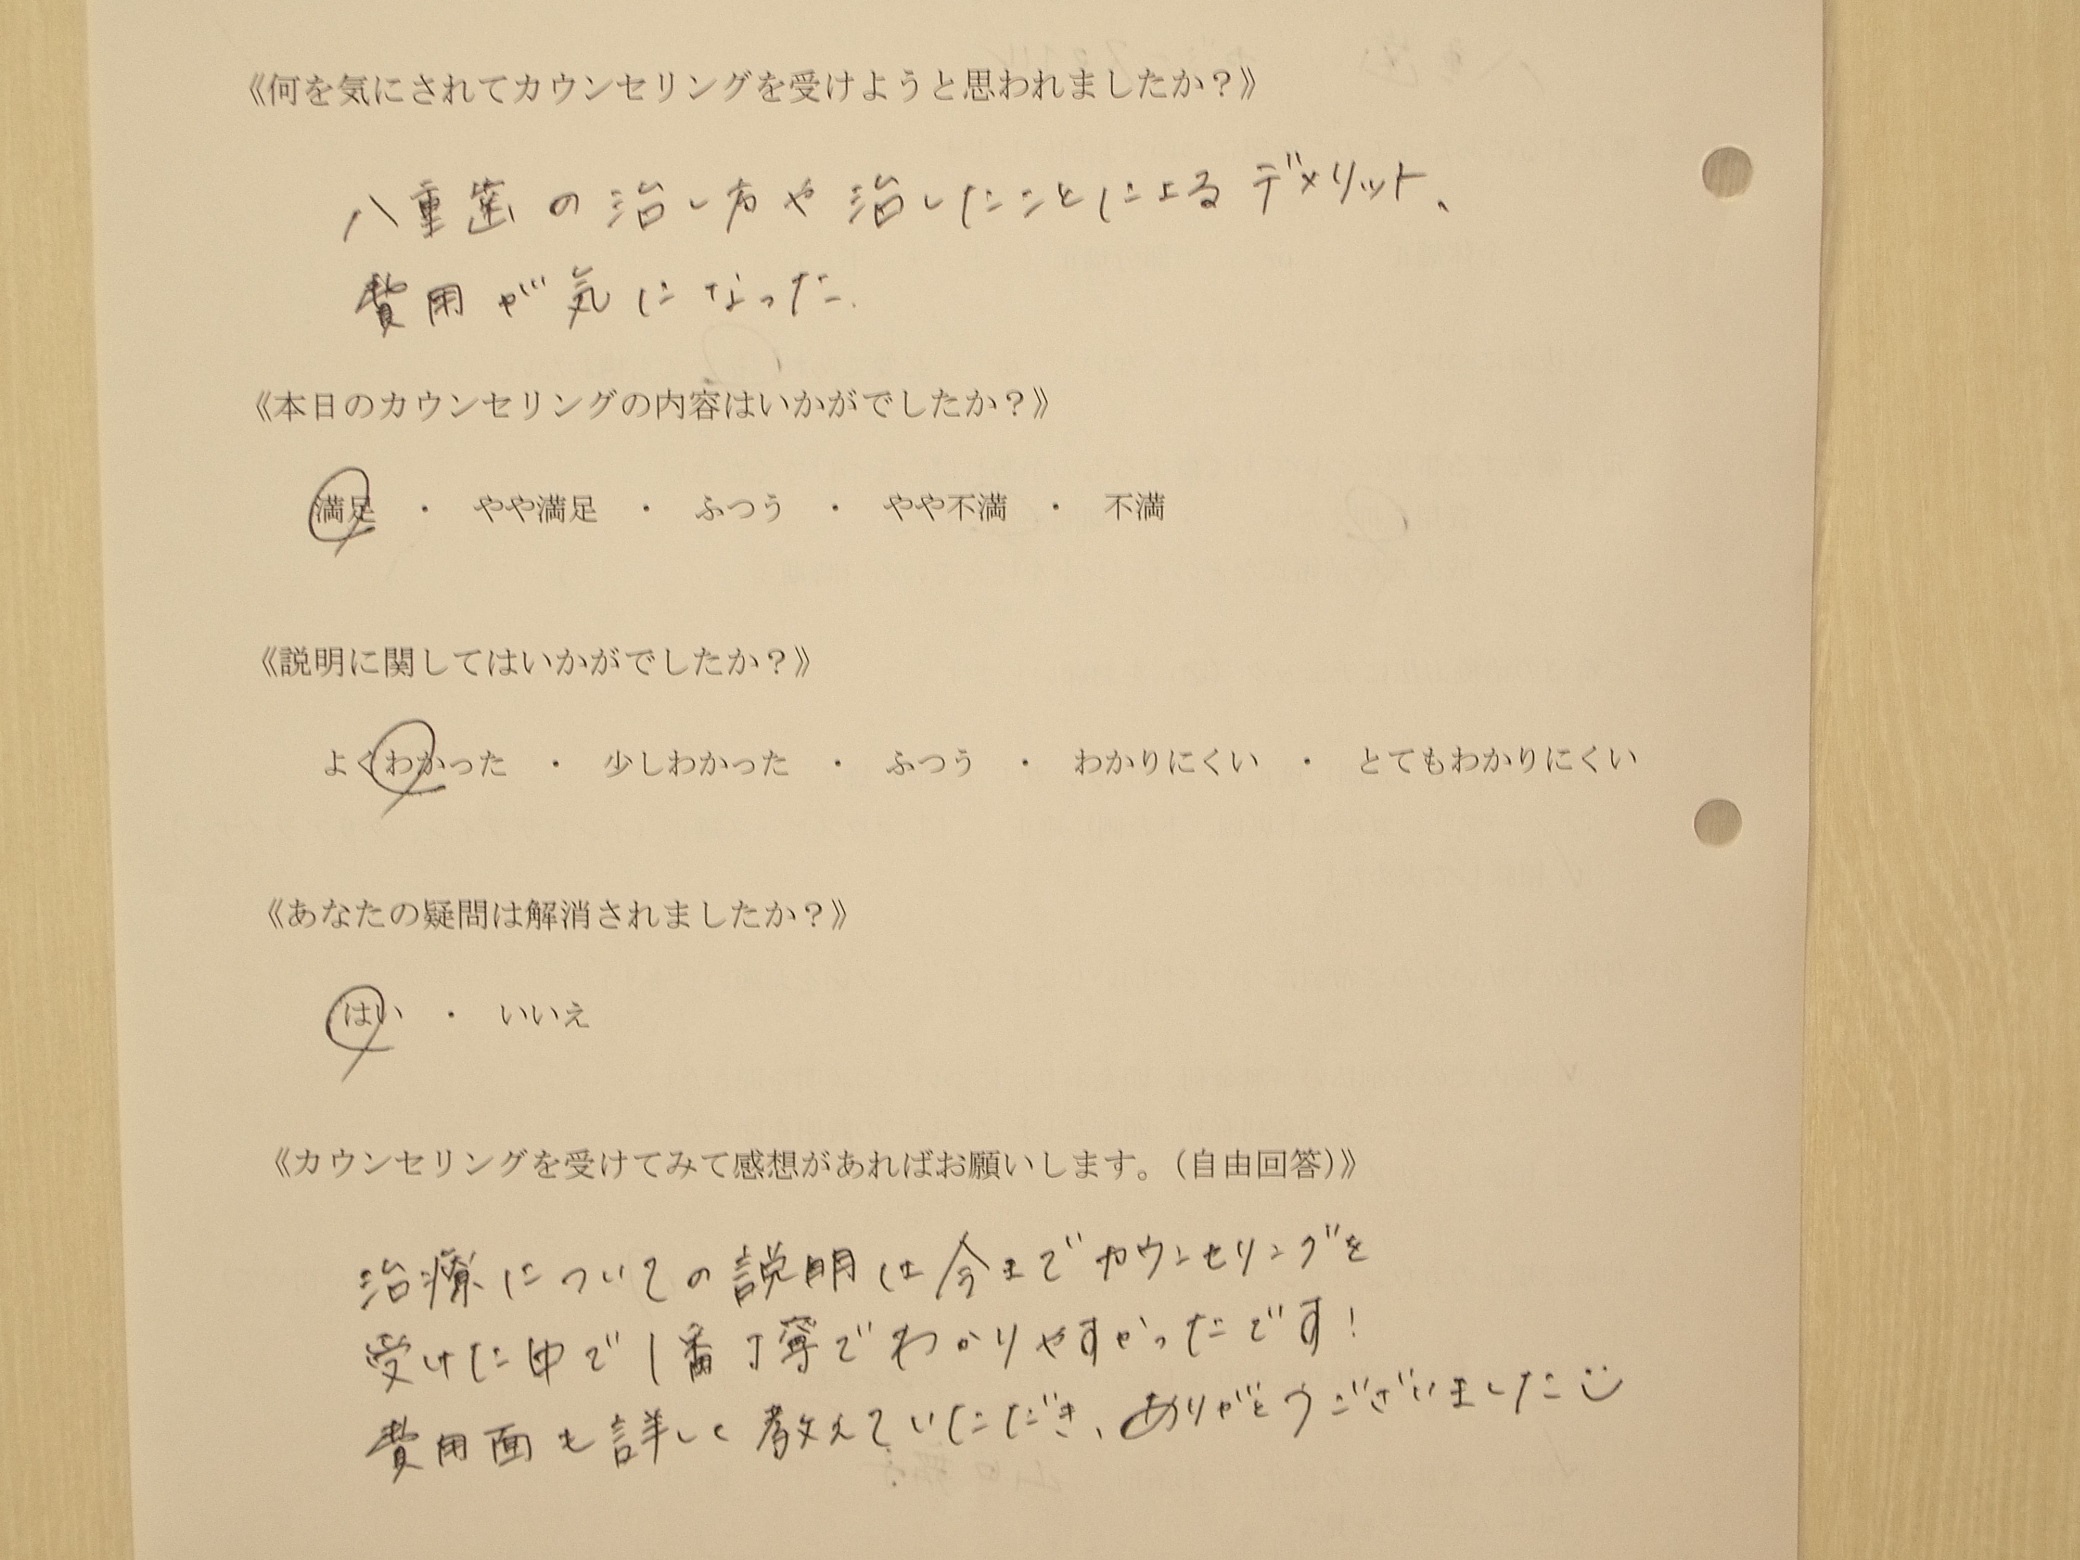 《何を気にされてカウンセリングを受けようと思われましたか？》
八重歯の治し方や治したことによるデメリット、
費用が気になった。
《本日のカウンセリングの内容はいかがでしたか？》
満足 ・ やや満足 ・ ふつう ・ やや不満 ・ 不満
《説明に関してはいかがでしたか？》
よくわかった ・ 少しわかった ・ ふつう ・ わかりにくい ・ とてもわかりにくい
《あなたの疑問は解消されましたか？》
はい ・ いいえ
《カウンセリングを受けてみて感想があればお願いします。（自由回答）》
治療についての説明は今までカウンセリングを
受けた中で1番丁寧でわかりやすかったです！
費用面も詳しく教えていただき、ありがとうございました